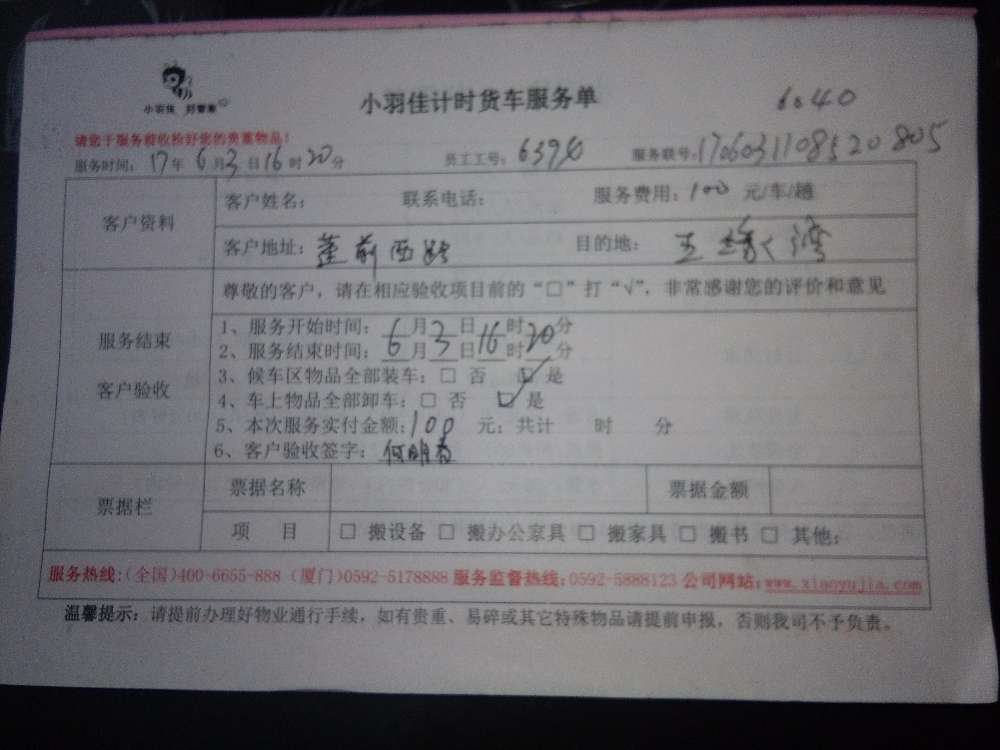 小羽佳 好管家
小羽佳计时货车服务单
6:40
请您于服务前收检好您的贵重物品!
服务时间: 17年6月3日16时20分 员工工号: 6394 服务联号: 170603110852 0805
客户资料
客户姓名: 联系电话: 服务费用: 100 元/车/趟
客户地址: 莲前西路 目的地: 五缘湾
尊敬的客户，请在相应验收项目前的“□”打“√”，非常感谢您的评价和意见
服务结束
客户验收
1、服务开始时间: 6月3日16时20分
2、服务结束时间: 月 日 时 分
3、候车区物品全部装车: □ 否 □ 是
4、车上物品全部卸车: □ 否 □ 是
5、本次服务实付金额: 100 元; 共计 时 分
6、客户验收签字:
票据栏
票据名称 票据金额
项 目 □ 搬设备 □ 搬办公家具 □ 搬家具 □ 搬书 □ 其他:
服务热线:(全国)400-6655-888 (厦门)0592-5178888 服务监督热线:0592-5888123 公司网站:www.xiaoyujia.com
温馨提示: 请提前办理好物业通行手续，如有贵重、易碎或其它特殊物品请提前申报，否则我司不予负责。